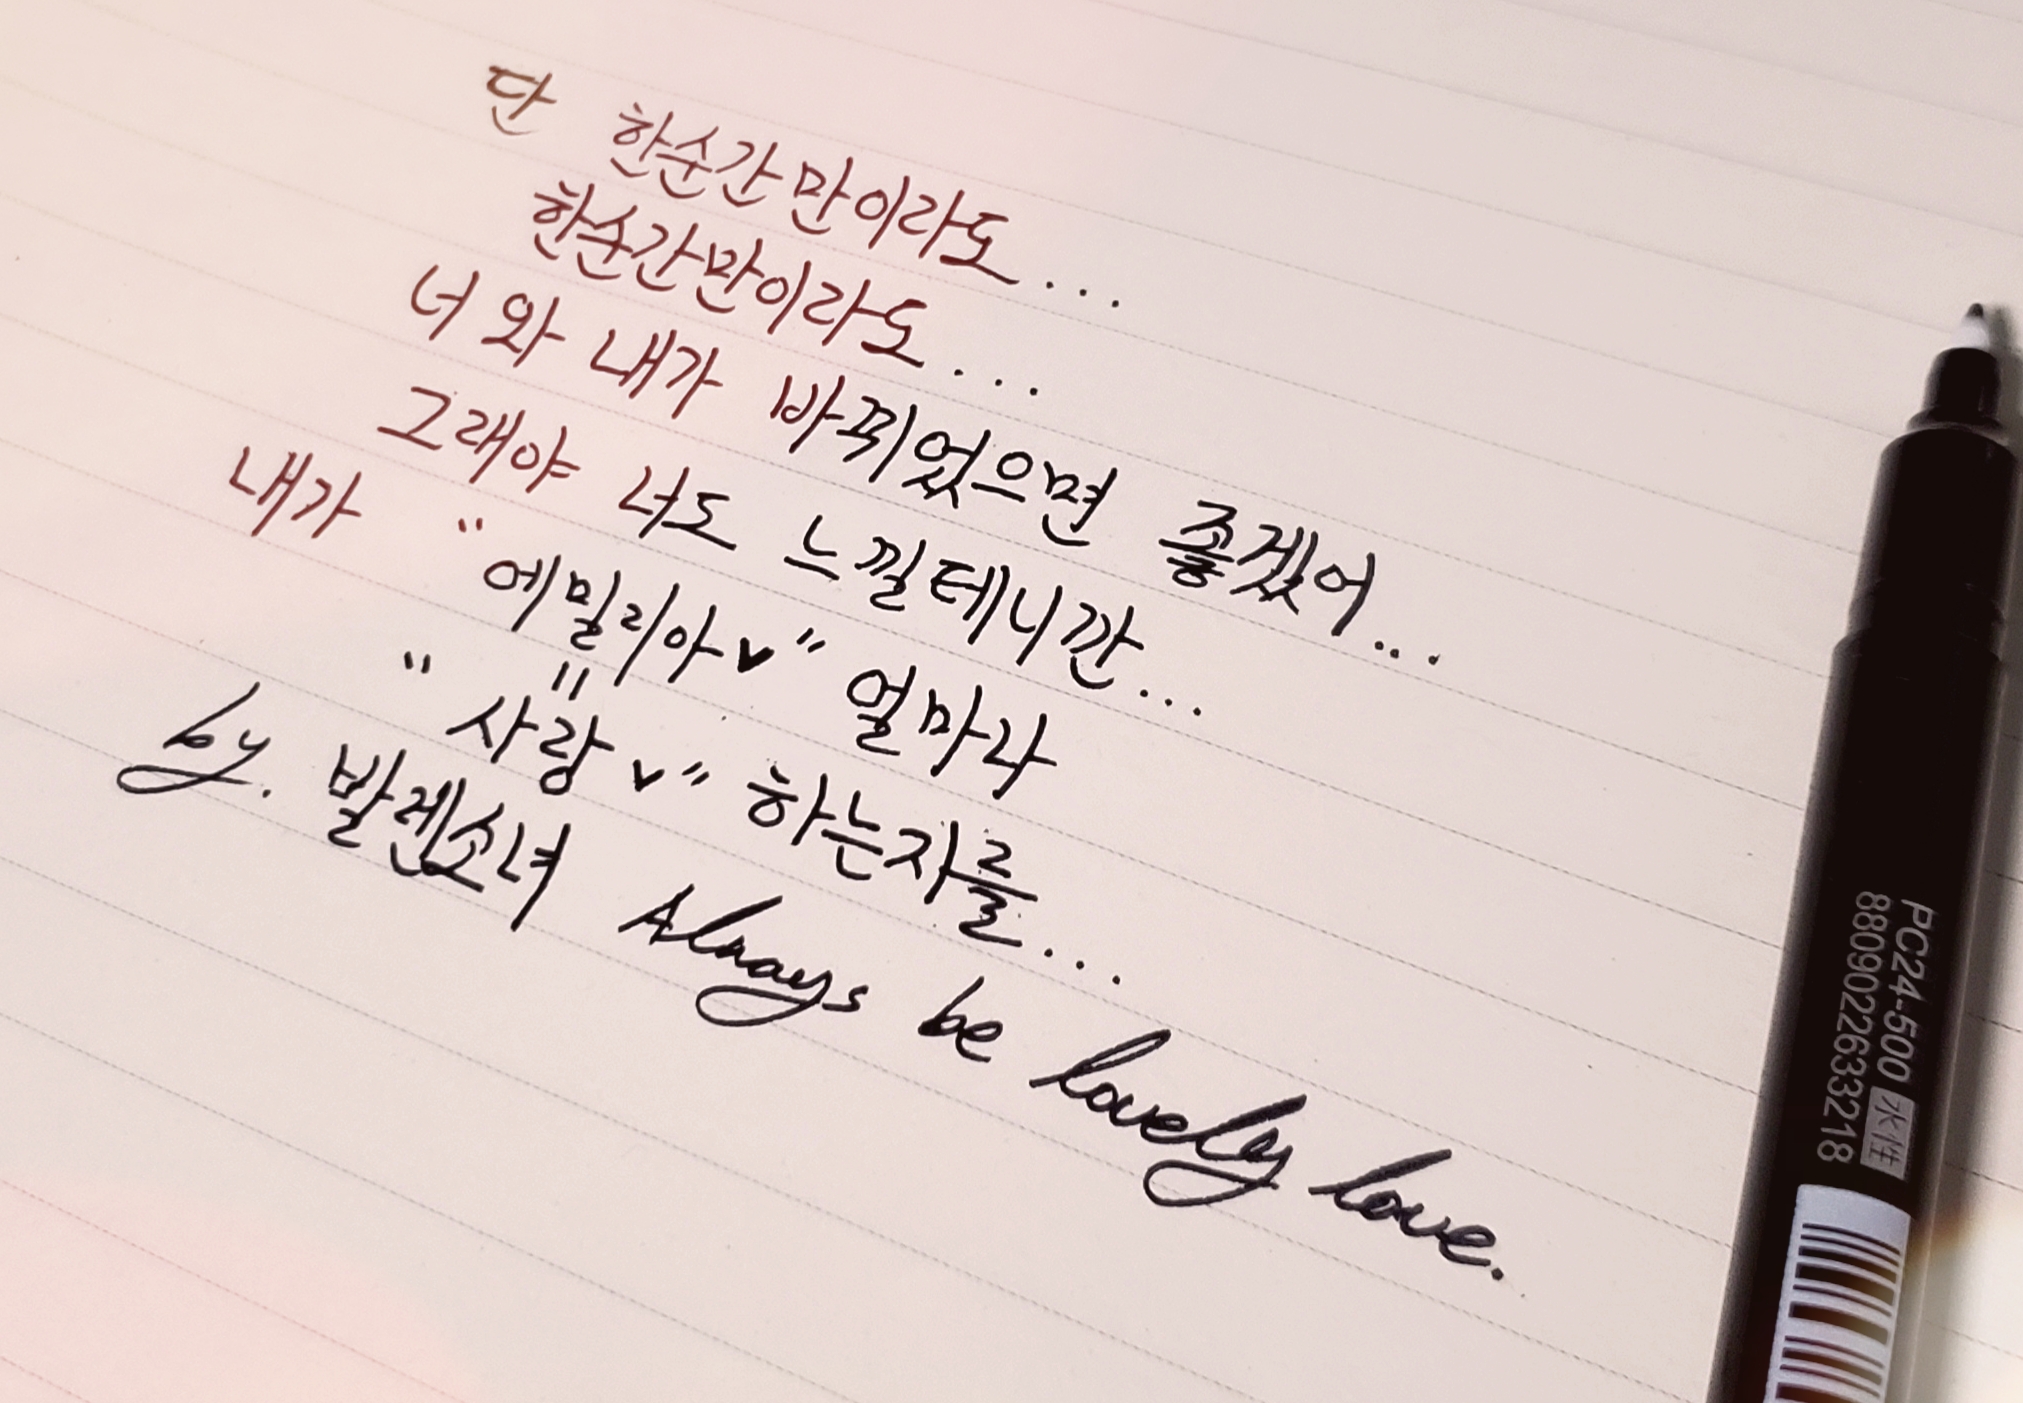 단 한순간만이라도...
한순간만이라도...
너와 내가 바뀌었으면 좋겠어...
그래야 너도 느낄테니깐...
내가 "에밀리아♥" 얼마나
"사랑♥" 하는자를...
by. 발렌소녀 Always be lovely love.
PC24-500 水性
8809022633218